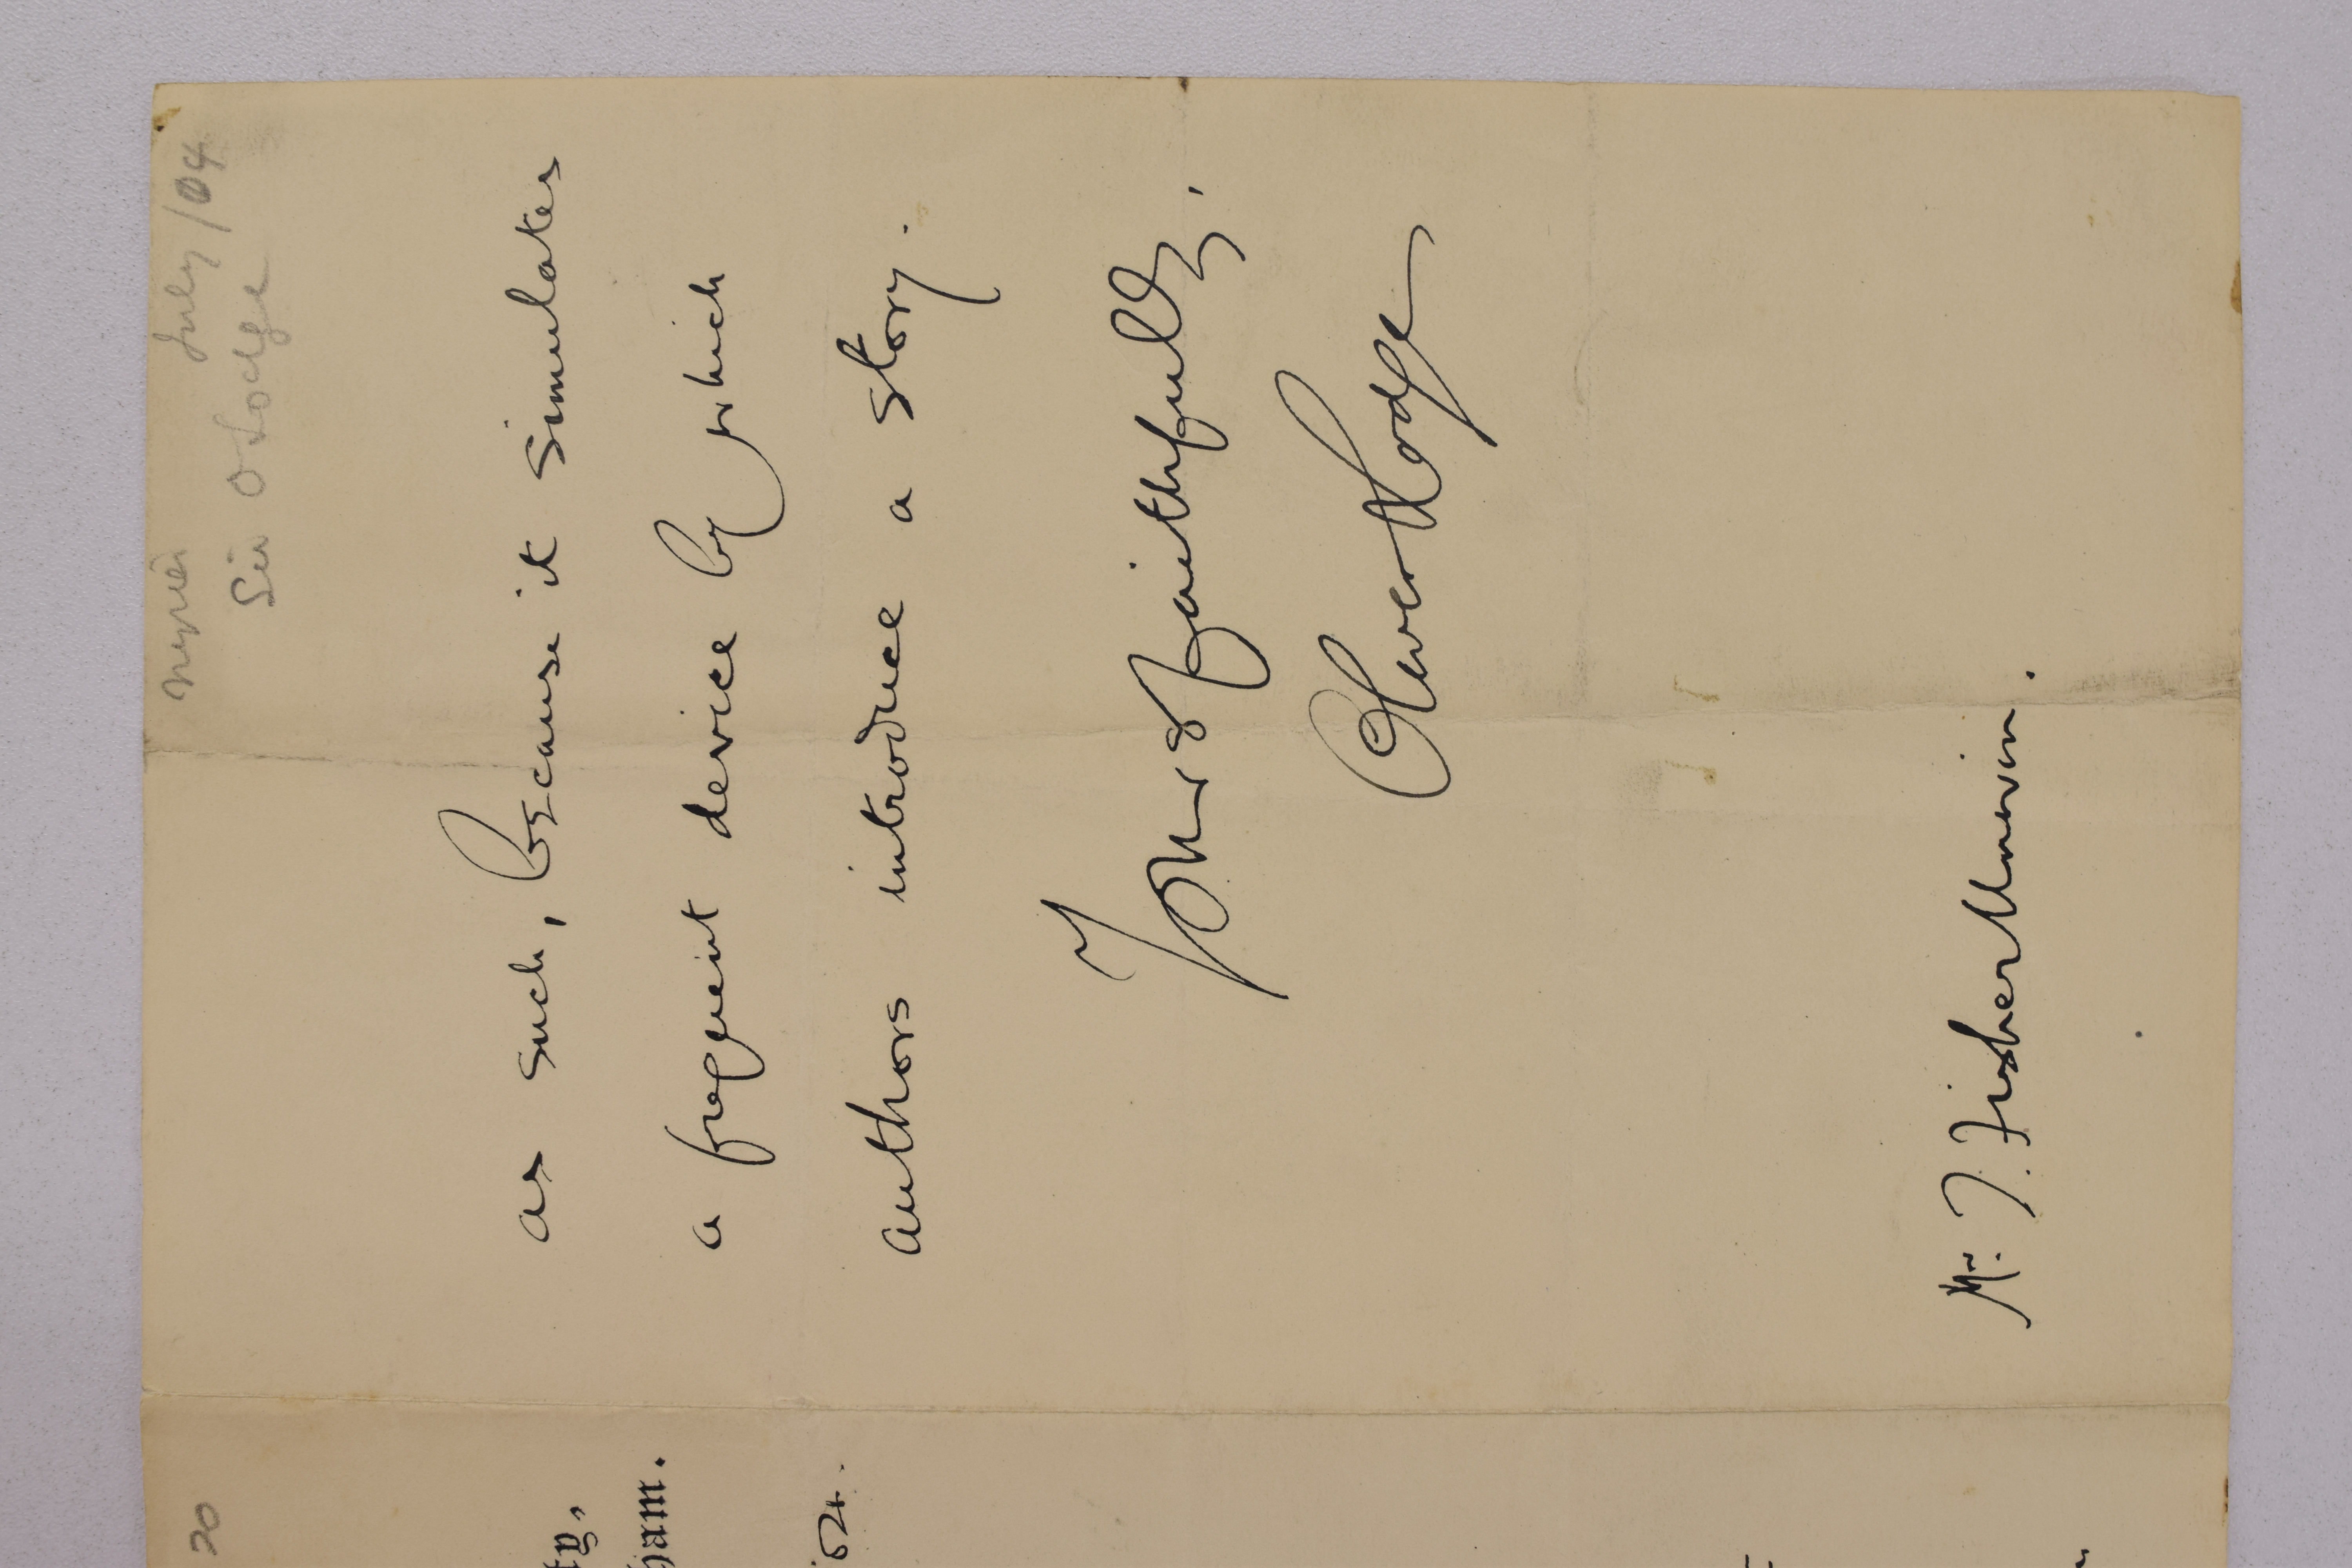 July /04
Sir O Lodge
as such, because it simulates
a frequent device by which
authors introduce a story.
Yours faithfully,
Oliver Lodge
Mr. T. Fisher Unwin.
20
ty,
ham.